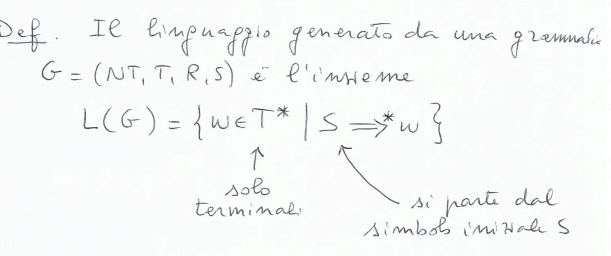 Def. Il linguaggio generato da una grammatica
G = (NT, T, R, S) è l'insieme
L(G) = { w ∈ T* | S ⇒* w }
↑
solo
terminali
si parte dal
simbolo iniziale S